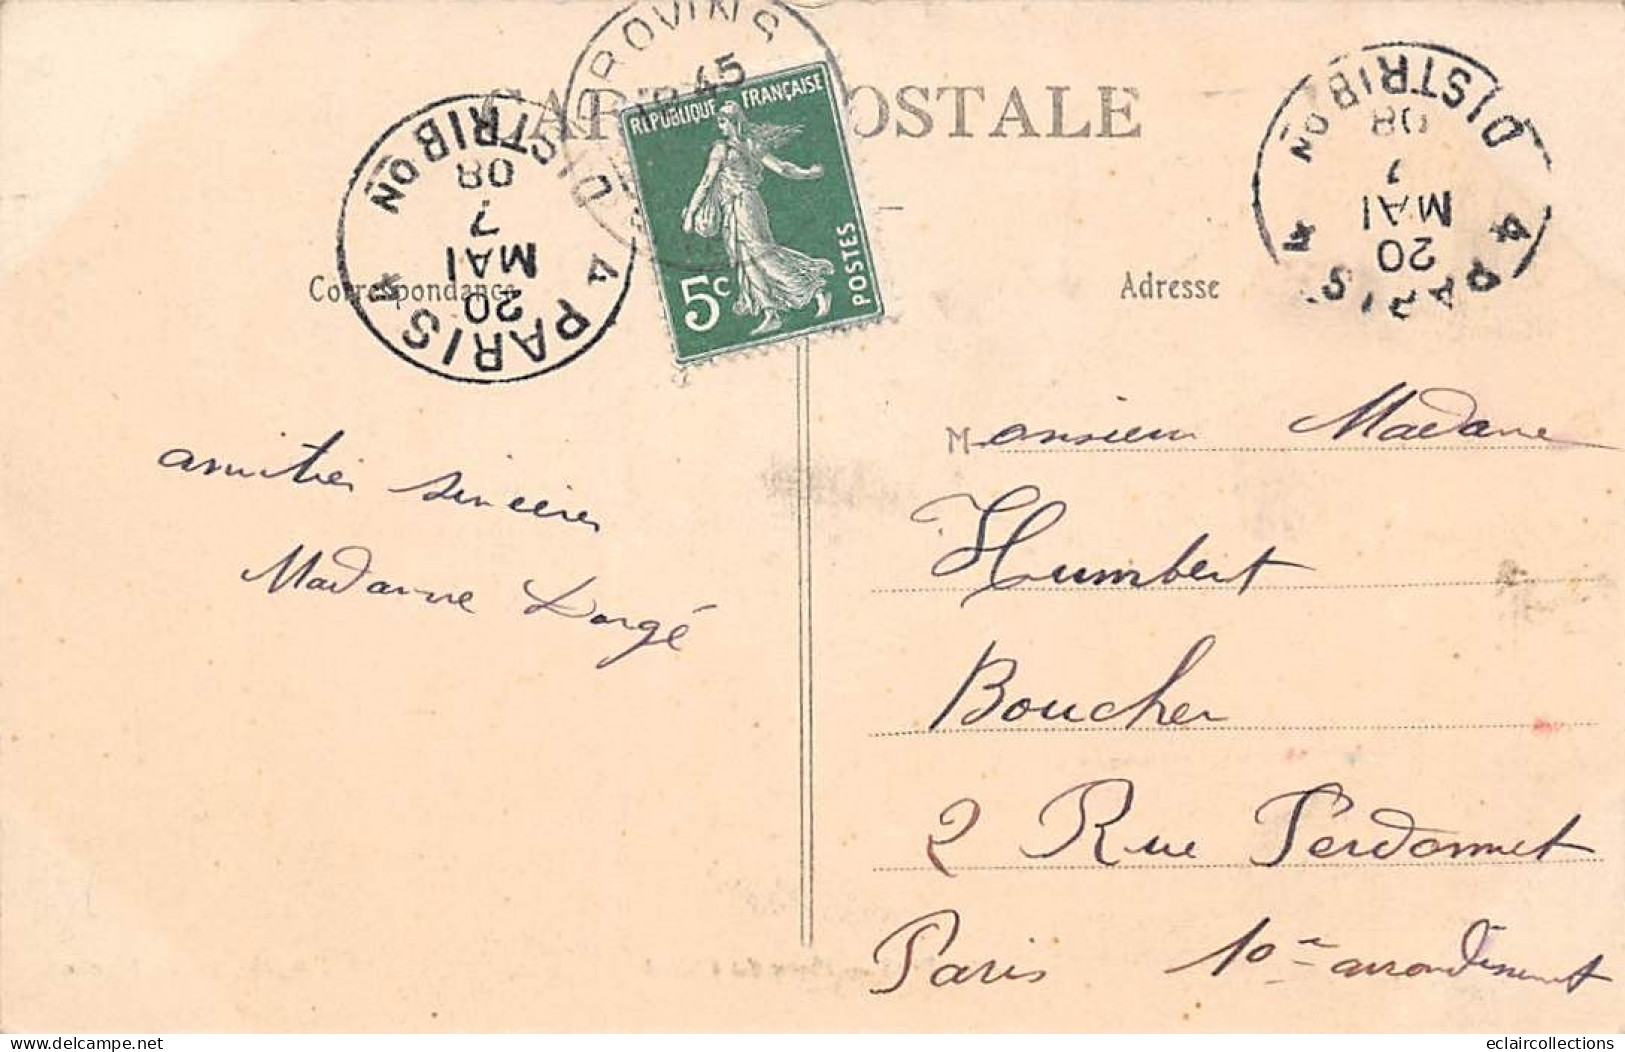 CARTE POSTALE
PROVINS
45
RÉPUBLIQUE FRANÇAISE
5c POSTES
PARIS 4 DISTRIBON
20
MAI
7
08
PARIS 4 DISTRIBON
20
MAI
7
08
Correspondance
Adresse
amitiés sincères
Madame
Monsieur Madame
Humbert
Boucher
2 Rue Perdonnet
Paris 10e arrondissement
eclaircollections